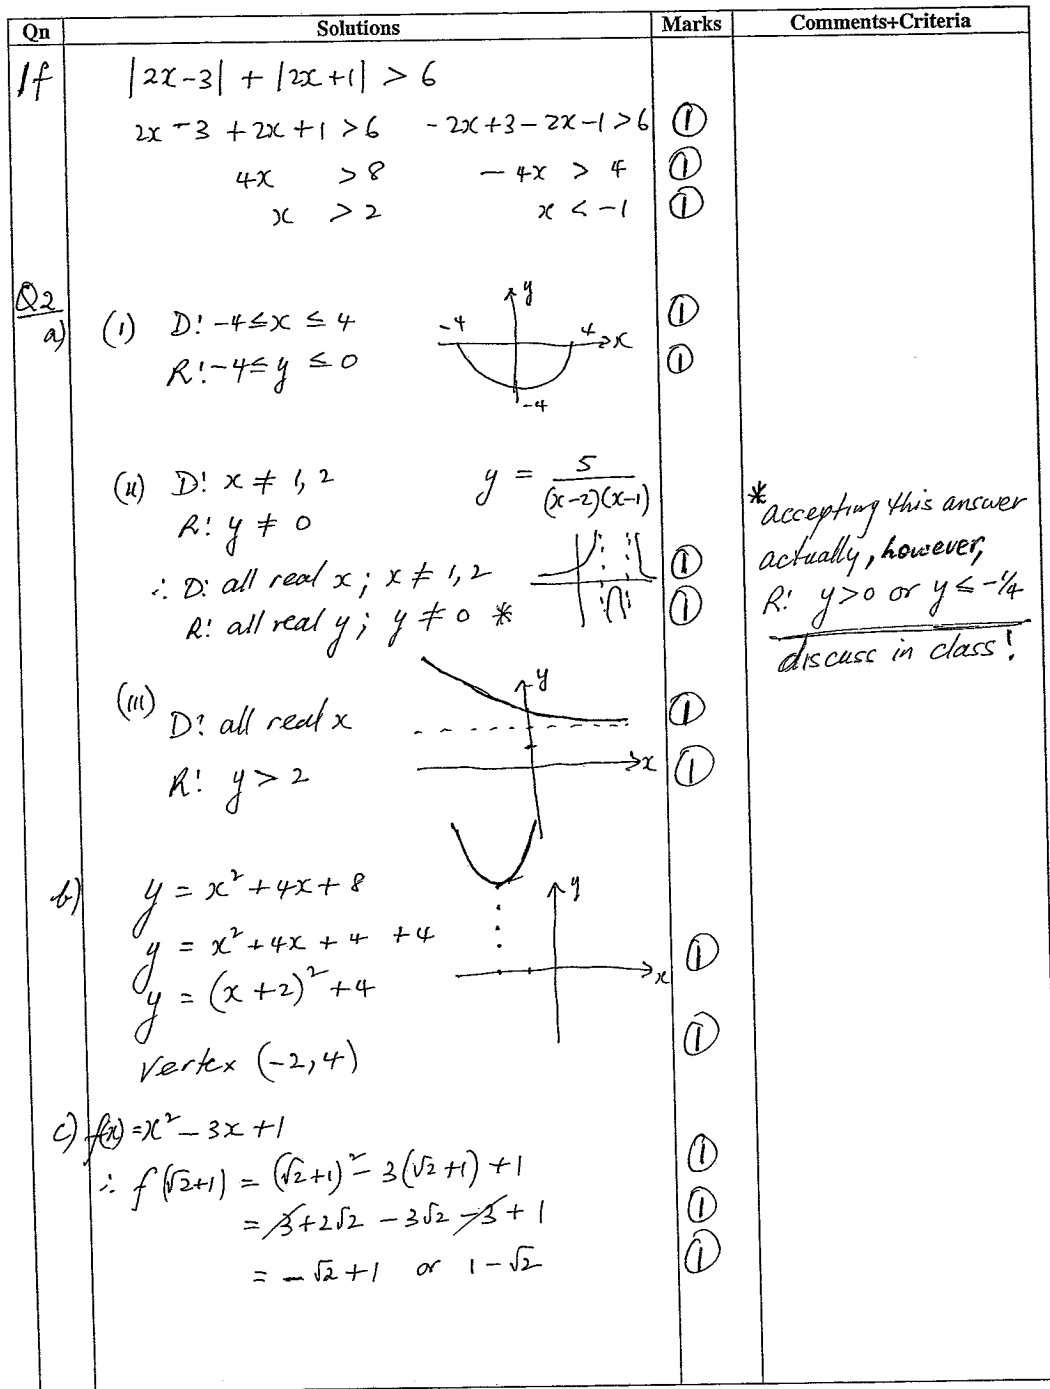 Qn Solutions Marks Comments+Criteria
1f |2x-3| + |2x+1| > 6
2x-3+2x+1>6 -2x+3-2x-1>6 ①
4x >8 -4x > 4 ①
x >2 x < -1 ①
Q2
a) (i) D: -4≤x≤4 ①
R: -4≤y≤0 ①
y
-4 4 x
-4
(ii) D: x ≠ 1, 2 y = 5/((x-2)(x-1))
R: y ≠ 0
∴ D: all real x; x ≠ 1, 2 ①
R: all real y; y ≠ 0 * ①
* accepting this answer
actually, however,
R: y>0 or y≤-1/4
discuss in class!
(iii) D: all real x ①
R: y > 2 ①
y
x
b) y = x²+4x+8
y = x²+4x+4+4 ①
y = (x+2)²+4
Vertex (-2,4) ①
y
x
c) f(x)=x²-3x+1
∴ f(√2+1) = (√2+1)²-3(√2+1)+1 ①
= 3+2√2-3√2-3+1 ①
= -√2+1 or 1-√2 ①